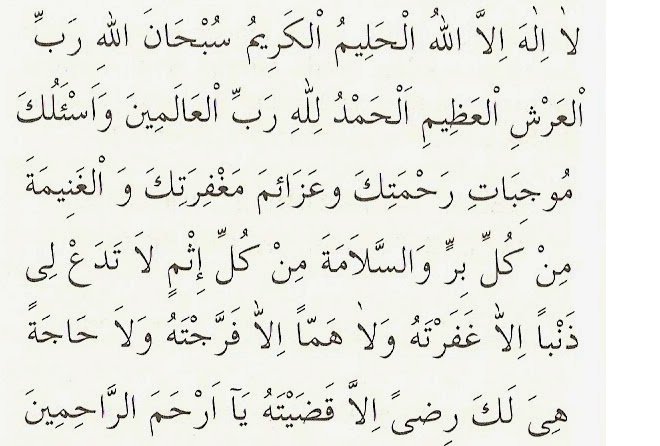 لَا اِلٰهَ اِلَّا اللهُ الْحَلِيمُ الْكَرِيمُ سُبْحَانَ اللهِ رَبِّ
الْعَرْشِ الْعَظِيمِ اَلْحَمْدُ لِلّٰهِ رَبِّ الْعَالَمِينَ وَاَسْئَلُكَ
مُوجِبَاتِ رَحْمَتِكَ وعَزَائِمَ مَغْفِرَتِكَ وَ الْغَنِيمَةَ
مِنْ كُلِّ بِرٍّ وَالسَّلَامَةَ مِنْ كُلِّ إِثْمٍ لَا تَدَعْ لِى
ذَنْباً اِلاَّ غَفَرْتَهُ وَلاَ هَمّاً اِلاَّ فَرَّجْتَهُ وَلَا حَاجَةً
هِىَ لَكَ رِضىً اِلاَّ قَضَيْتَهُ يَآ اَرْحَمَ الرَّاحِمِينَ